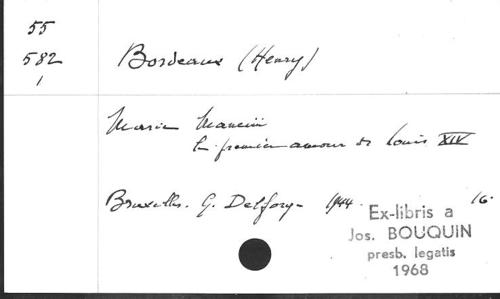 55
582
1
Bordeaux (Henry)
Marie Mancini
Le premier amour de Louis XIV
Bruxelles. G. Delforge 1944 16.
Ex-libris a
Jos. BOUQUIN
presb. legatis
1968